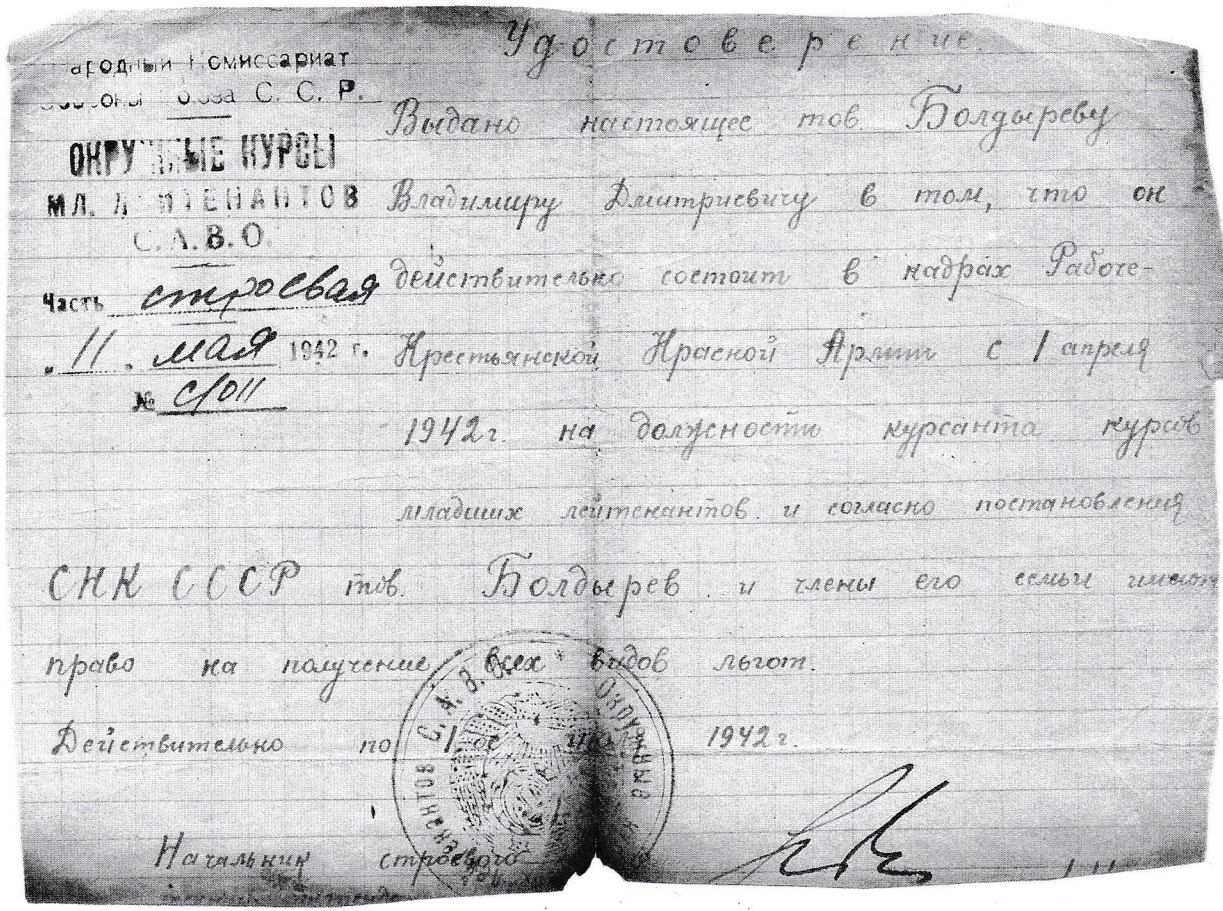 Удостоверение.
Народный Комиссариат
Обороны Союза С. С. Р.
ОКРУЖНЫЕ КУРСЫ
МЛ. ЛЕЙТЕНАНТОВ
С. А. В. О.
Часть строевая
„11" мая 1942 г.
№ с/011
Выдано настоящее тов Болдыреву
Владимиру Дмитриевичу в том, что он
действительно состоит в кадрах Рабоче-
Крестьянской Красной Армии с 1 апреля
1942г. на должности курсанта курсов
младших лейтенантов и согласно постановления
СНК СССР тов. Болдырев и члены его семьи имеют
право на получение всех видов льгот.
Действительно по 1ое 1942г.
Начальник строевого
С. А. В. О. * ОКРУЖНЫЕ